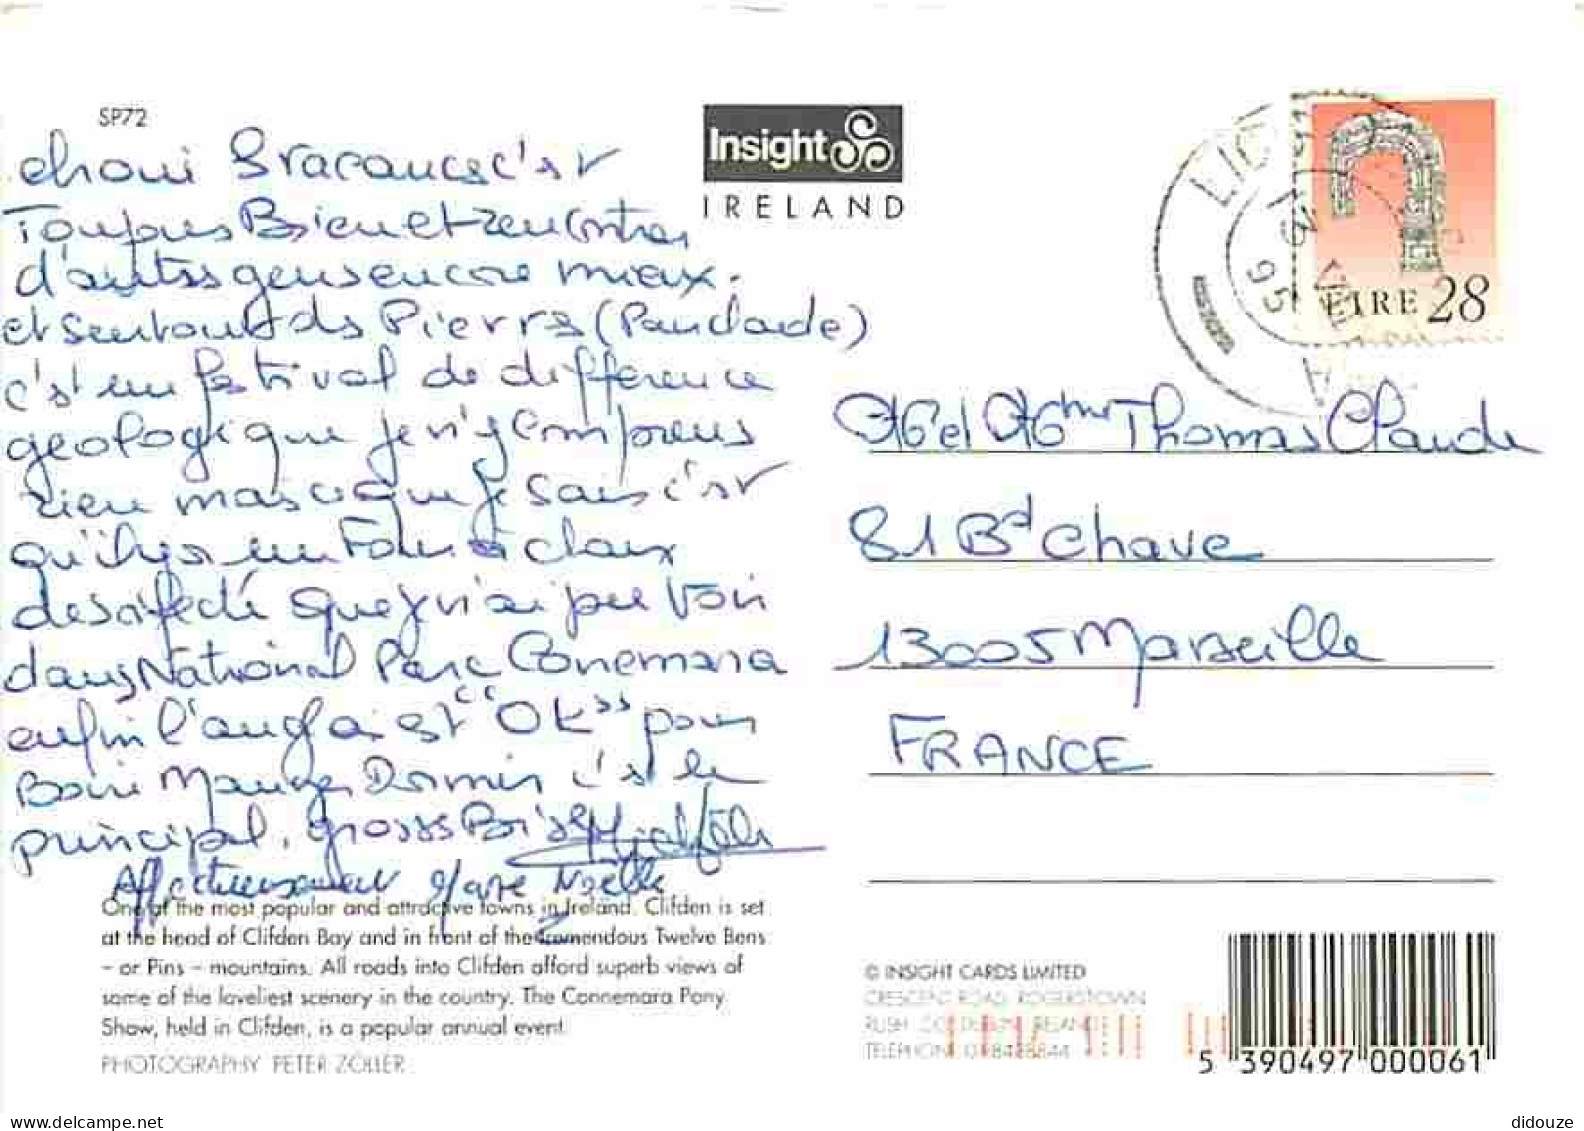 SP72
Insight
IRELAND
Toujours Bien et rencontrer
d'autres gens encore mieux.
et surtout ds Pierres (Panclaude)
c'st un festival de difference
geologique que je n'y comprens
rien mais ce que je sais c'st
qu'il y a un Four à chaux
desafecté que je n'ai pu voir
dans National Parc Conemara
enfin l'anglai est "OK" pour
Boire Manger Dormir c's le
principal. grosses Bises
Affectueusement Marie Noëlle
One of the most popular and attractive towns in Ireland, Clifden is set
at the head of Clifden Bay and in front of the tremendous Twelve Bens
– or Pins – mountains. All roads into Clifden afford superb views of
some of the loveliest scenery in the country. The Connemara Pony
Show, held in Clifden, is a popular annual event.
PHOTOGRAPHY PETER ZÖLLER
95
ÉIRE 28
M et Mme Thomas Claude
81 Bd Chave
13005 Marseille
FRANCE
© INSIGHT CARDS LIMITED
CRESCENT ROAD, ROGERSTOWN
RUSH, CO. DUBLIN, IRELAND
TELEPHONE 01-8438844
5 390497 000061
didouze